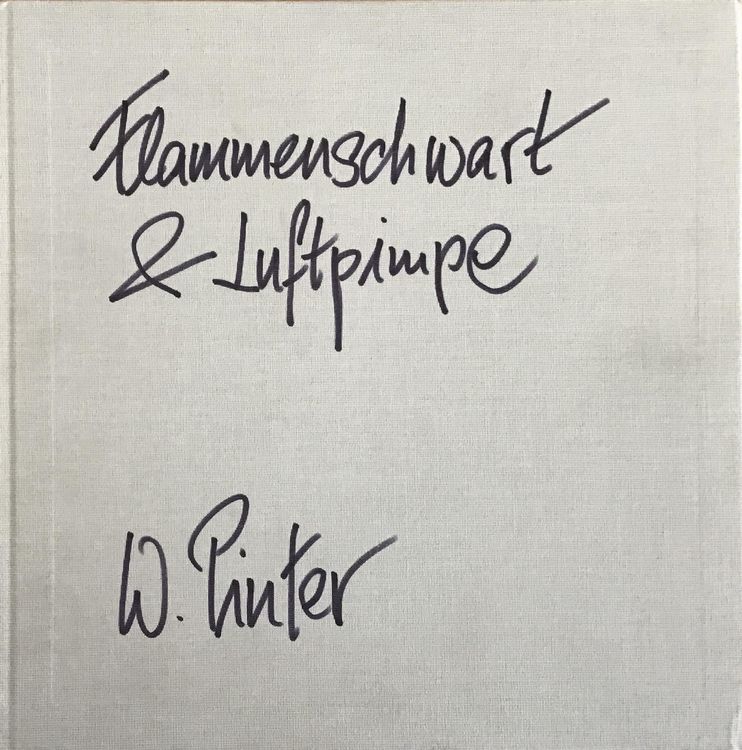 Flammenschwart
& Luftpimpe
W. Pinter